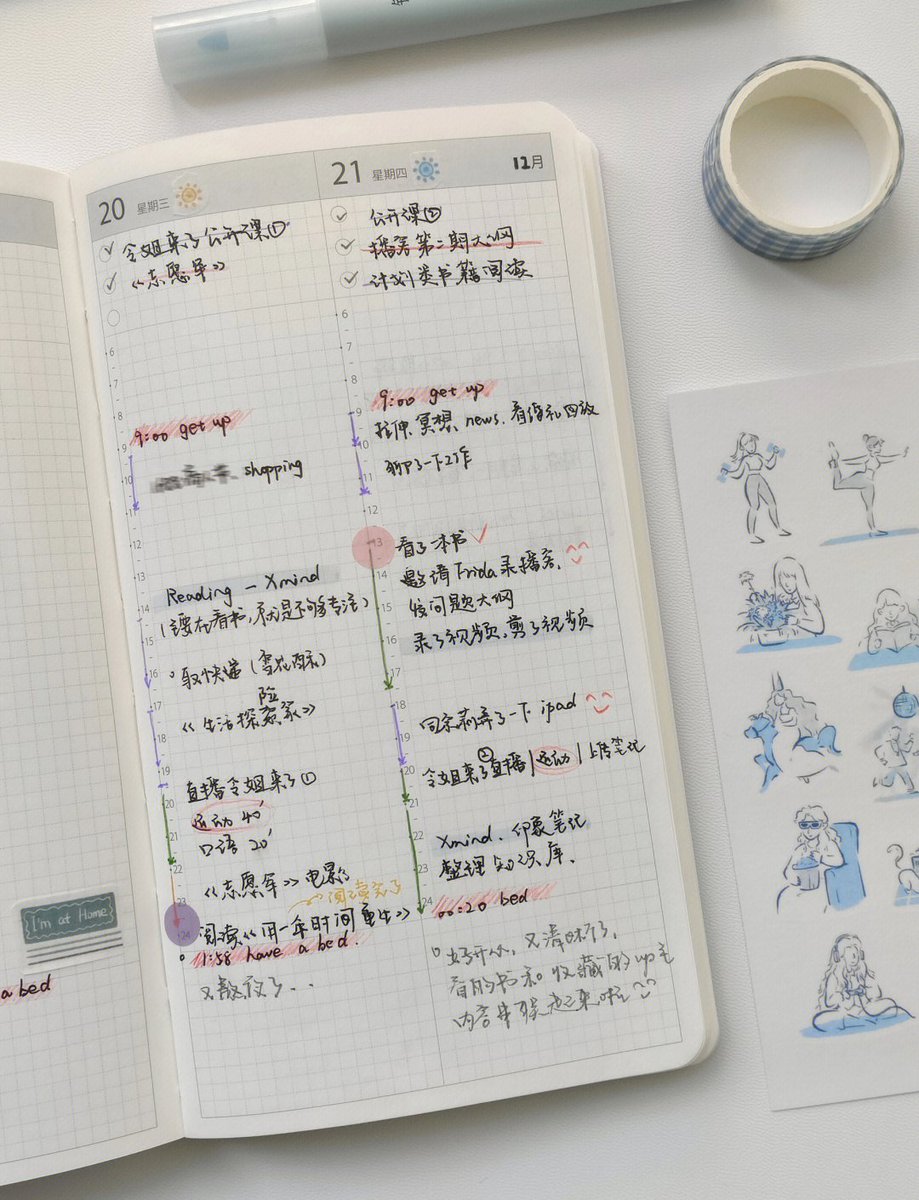 20 星期三
令姐来了公开课①
《志愿军》
6
7
8
9
10
11
12
13
14
15
16
17
18
19
20
21
22
23
24
9:00 get up
shopping
Reading — Xmind
(主要在看书,就是不够专注)
取快递
《生活探险家》
直播令姐来了①
运动 40'
口语 20'
《志愿军》电影
阅读完了
阅读《用一年时间重生》
1:58 have a bed.
又熬夜了...
I'm at Home
a bed
21 星期四 12月
公开课②
播客第二期大纲
计划类书籍阅读
6
7
8
9
10
11
12
13
14
15
16
17
18
19
20
21
22
23
24
9:00 get up
拉伸. 冥想. news. 看
聊了一下工作
看了一本书
邀请Frida录播客.
发问题大纲
录了视频. 剪了视频
弄了一下 ipad
令姐来了②直播 | 运动 | 上传笔记
Xmind. 印象笔记
整理知识库.
00:20 bed
好开心, 又清晰了,
看的书和收藏的up主
内容串联起来啦